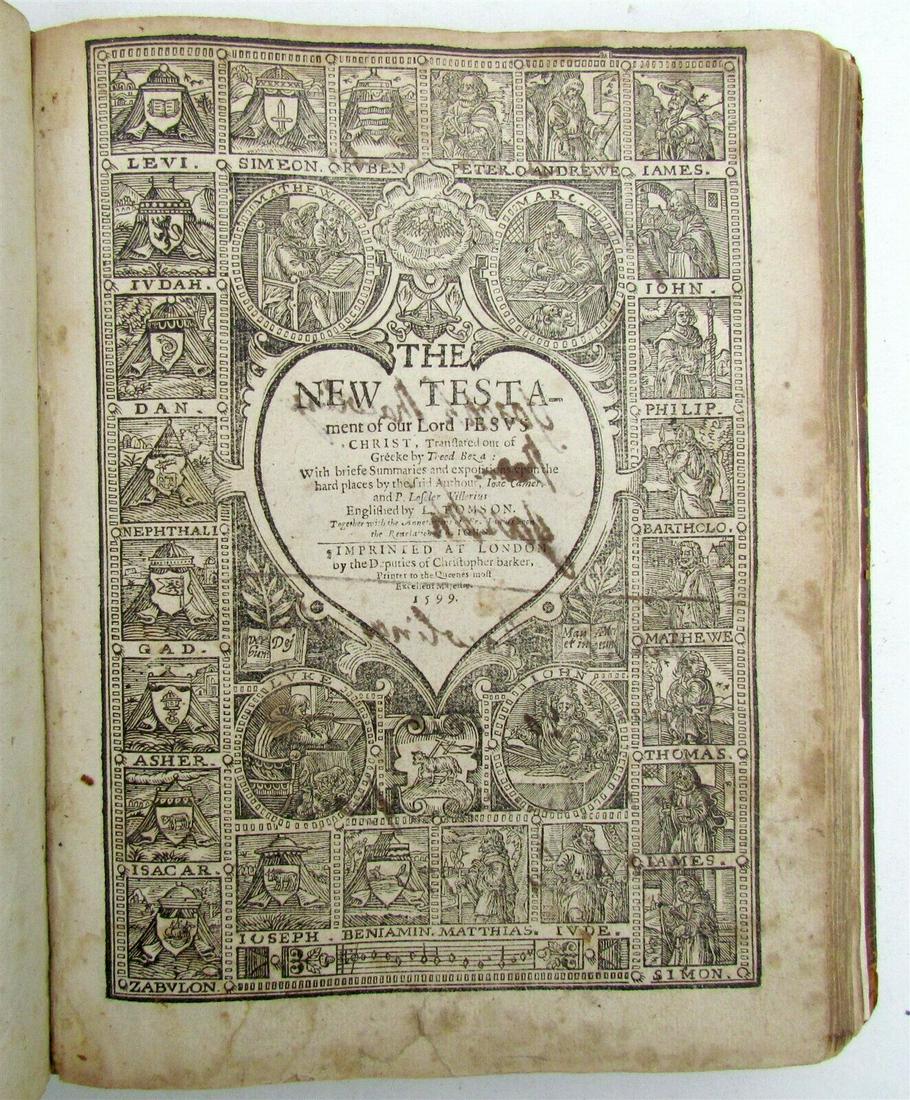 LEVI. SIMEON. RVBEN PETER. ANDREWE IAMES.
MATHEW MARC.
IVDAH. IOHN.
DAN. PHILIP.
NEPHTHALI BARTHOLO.
GAD. MATHEWE
ASHER. THOMAS.
ISACAR. IAMES.
ZABVLON. SIMON.
THE
NEW TESTA-
ment of our Lord IESVS
CHRIST, Translated out of
Greeke by Theod. Beza:
With briefe Summaries and expositions upon the
hard places by the said Authour, Ioac. Camer.
and P. Loseler Villerius
Englished by L. TOMSON.
Together with the Annotations of Fr. Iunius upon
the Revelation of
IMPRINTED AT LONDON
by the Deputies of Christopher barker,
Printer to the Queenes most
Excellent Maiestie.
1599.
LVKE IOHN
IOSEPH. BENIAMIN. MATTHIAS. IVDE.